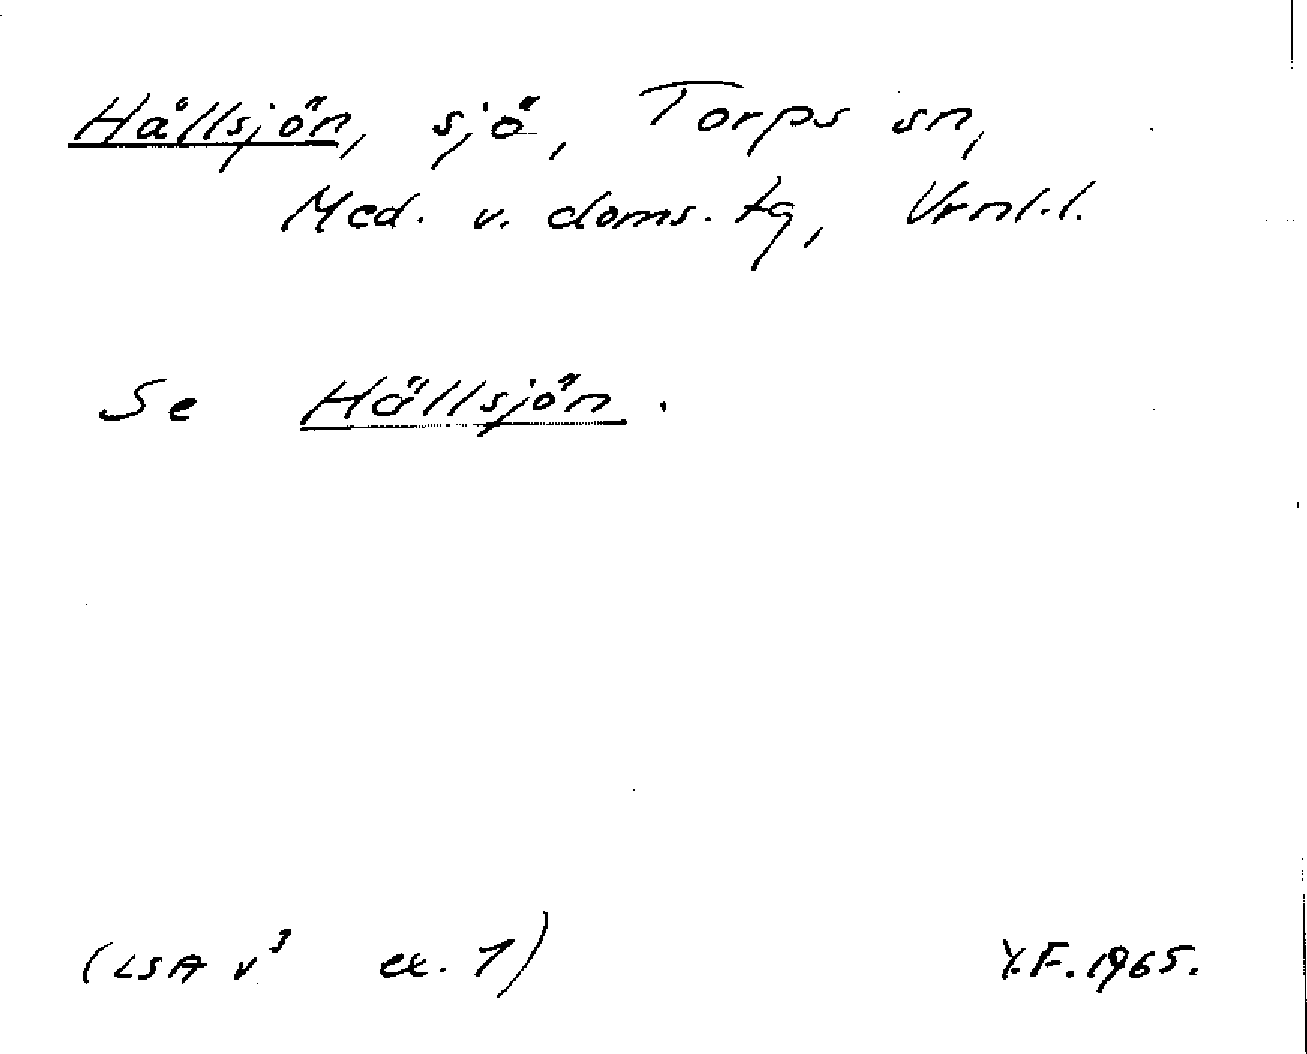 Hållsjön, sjö, Torps sn,
Med. v. doms. tg, Vrnl.l.
Se Hällsjön.
(LSA v³ ex. 1) Y.F. 1965.